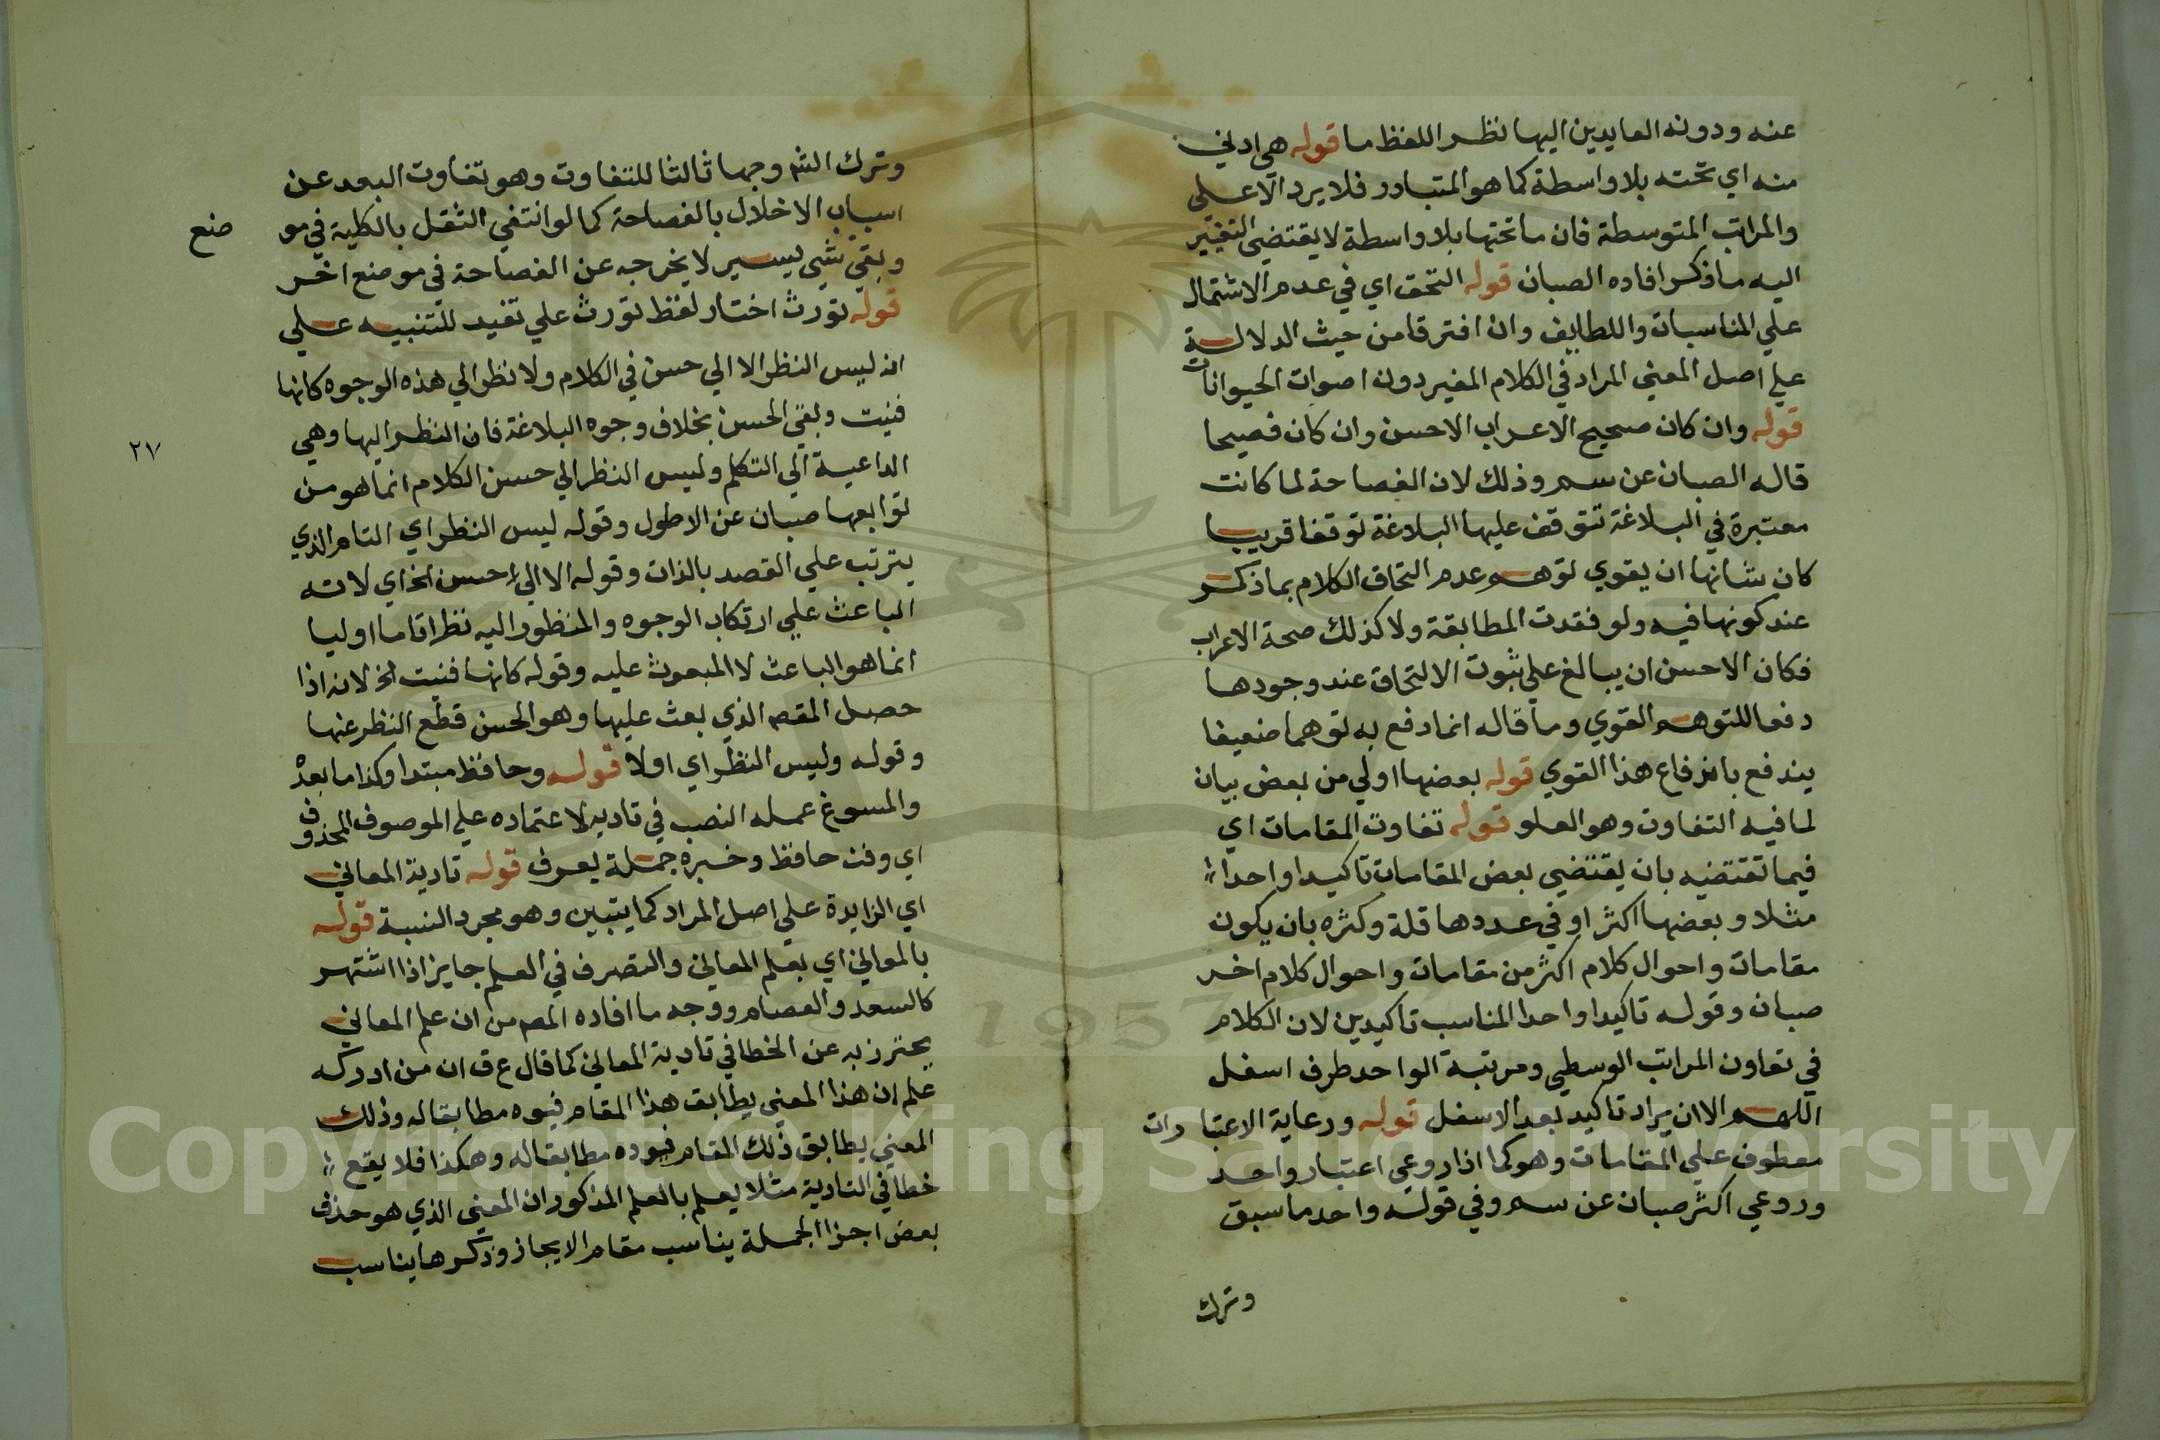 عنه ودونه العايدين اليها نظر اللفظ ما قوله هي ادني
منه اي تحته بلا واسطة كما هو المتبادر فلا يرد الاعلي
والمراتب المتوسطة فان ما تحتها بلا واسطة لا يقتضي التغيير
اليه ما ذكر افاده الصبان قوله التحق اي في عدم الاشتمال
علي المناسبات واللطايف وان افترقا من حيث الدلالة
علي اصل المعني المراد في الكلام المغير دون اصوات الحيوانات
قوله وان كان صحيح الاعراب الاحسن وان كان فصيحا
قاله الصبان عن سم وذلك لان الفصاحة لما كانت
معتبرة في البلاغة تتوقف عليها البلاغة توقفا قريبا
كان شانها ان يقوي توهم عدم التحاق الكلام بما ذكر
عند كونها فيه ولو فقدت المطابقة ولا كذلك صحة الاعراب
فكان الاحسن ان يبالغ علي ثبوت الالتحاق عند وجودها
دفعا للتوهم القوي وما قاله انما دفع به توهما ضعيفا
يندفع باندفاع هذا القوي قوله بعضها اولي من بعض بيان
لما فيه التفاوت وهو العلو قوله تفاوت المقامات اي
فيما تقتضيه بان يقتضي بعض المقامات تاكيدا واحدا
مثلا وبعضها اكثر او في عددها قلة وكثره بان يكون
مقامات واحوال كلام اكثر من مقامات واحوال كلام اخر
صبان وقوله تاكيدا واحدا المناسب تاكيدين لان الكلام
في تفاون المراتب الوسطي ومرتبة الواحد طرف اسفل
اللهم الا ان يراد تاكيد بعد الاسفل قوله ورعاية الاعتبارات
معطوف علي المقامات وهو كما اذا روعي اعتبار واحد
وروعي اكثر صبان عن سم وفي قوله واحد ما سبق
وترك
وترك الشم وجها ثالثا للتفاوت وهو تفاوت البعد عن
اسباب الاخلال بالفصاحة كما لو انتفي الثقل بالكلية في مو
ضع
وبقي شي يسير لا يخرجه عن الفصاحة في موضع اخر
قوله تورث اختار لفظ تورث علي تفيد للتنبيه علي
انه ليس النظر الا الي حسن في الكلام ولا نظر الي هذه الوجوه كانها
فنيت وبقي الحسن بخلاف وجوه البلاغة فان النظر اليها وهي
٢٧
الداعية الي التكلم وليس النظر الي حسن الكلام انما هو من
توابعها صبان عن الاطول وقوله ليس النظر اي التام الذي
يترتب علي القصد بالذات وقوله الا الي حسن الخ اي لانه
الباعث علي ارتكاب الوجوه والمنظور اليه نظرا تاما اوليا
انما هو الباعث لا المبعوث عليه وقوله كانها فنيت الخ لانه اذا
حصل المقصم الذي بعث عليها وهو الحسن قطع النظر عنها
وقوله وليس النظر اي اولا قوله وحافظ مبتدا وكذا ما بعده
والمسوغ عمله النصب في تادية لاعتماده علي الموصوف المحذوف
اي وفن حافظ وخبره جملة يعرف قوله تادية المعاني
اي الزايدة علي اصل المراد كما يتبين وهو مجرد النسبة قوله
بالمعاني اي بعلم المعاني والتصرف في العلم جايز اذا اشتهر
كالسعد والعصام ووجه ما افاده المصم من ان علم المعاني
يحترز به عن الخطا في تادية المعاني كما قال ع ق ان من ادركه
علم ان هذا المعني يطابق هذا المقام فيوه مطابقا له وذلك
المعني يطابق ذلك المقام فيوده مطابقا له وهكذا فلا يقع
خطا في التادية مثلا يعلم بالعلم المذكور ان المعني الذي هو حذف
بعض اجزا الجملة يناسب مقام الايجاز وذكرها يناسب
1957
Copyright © King Saud University